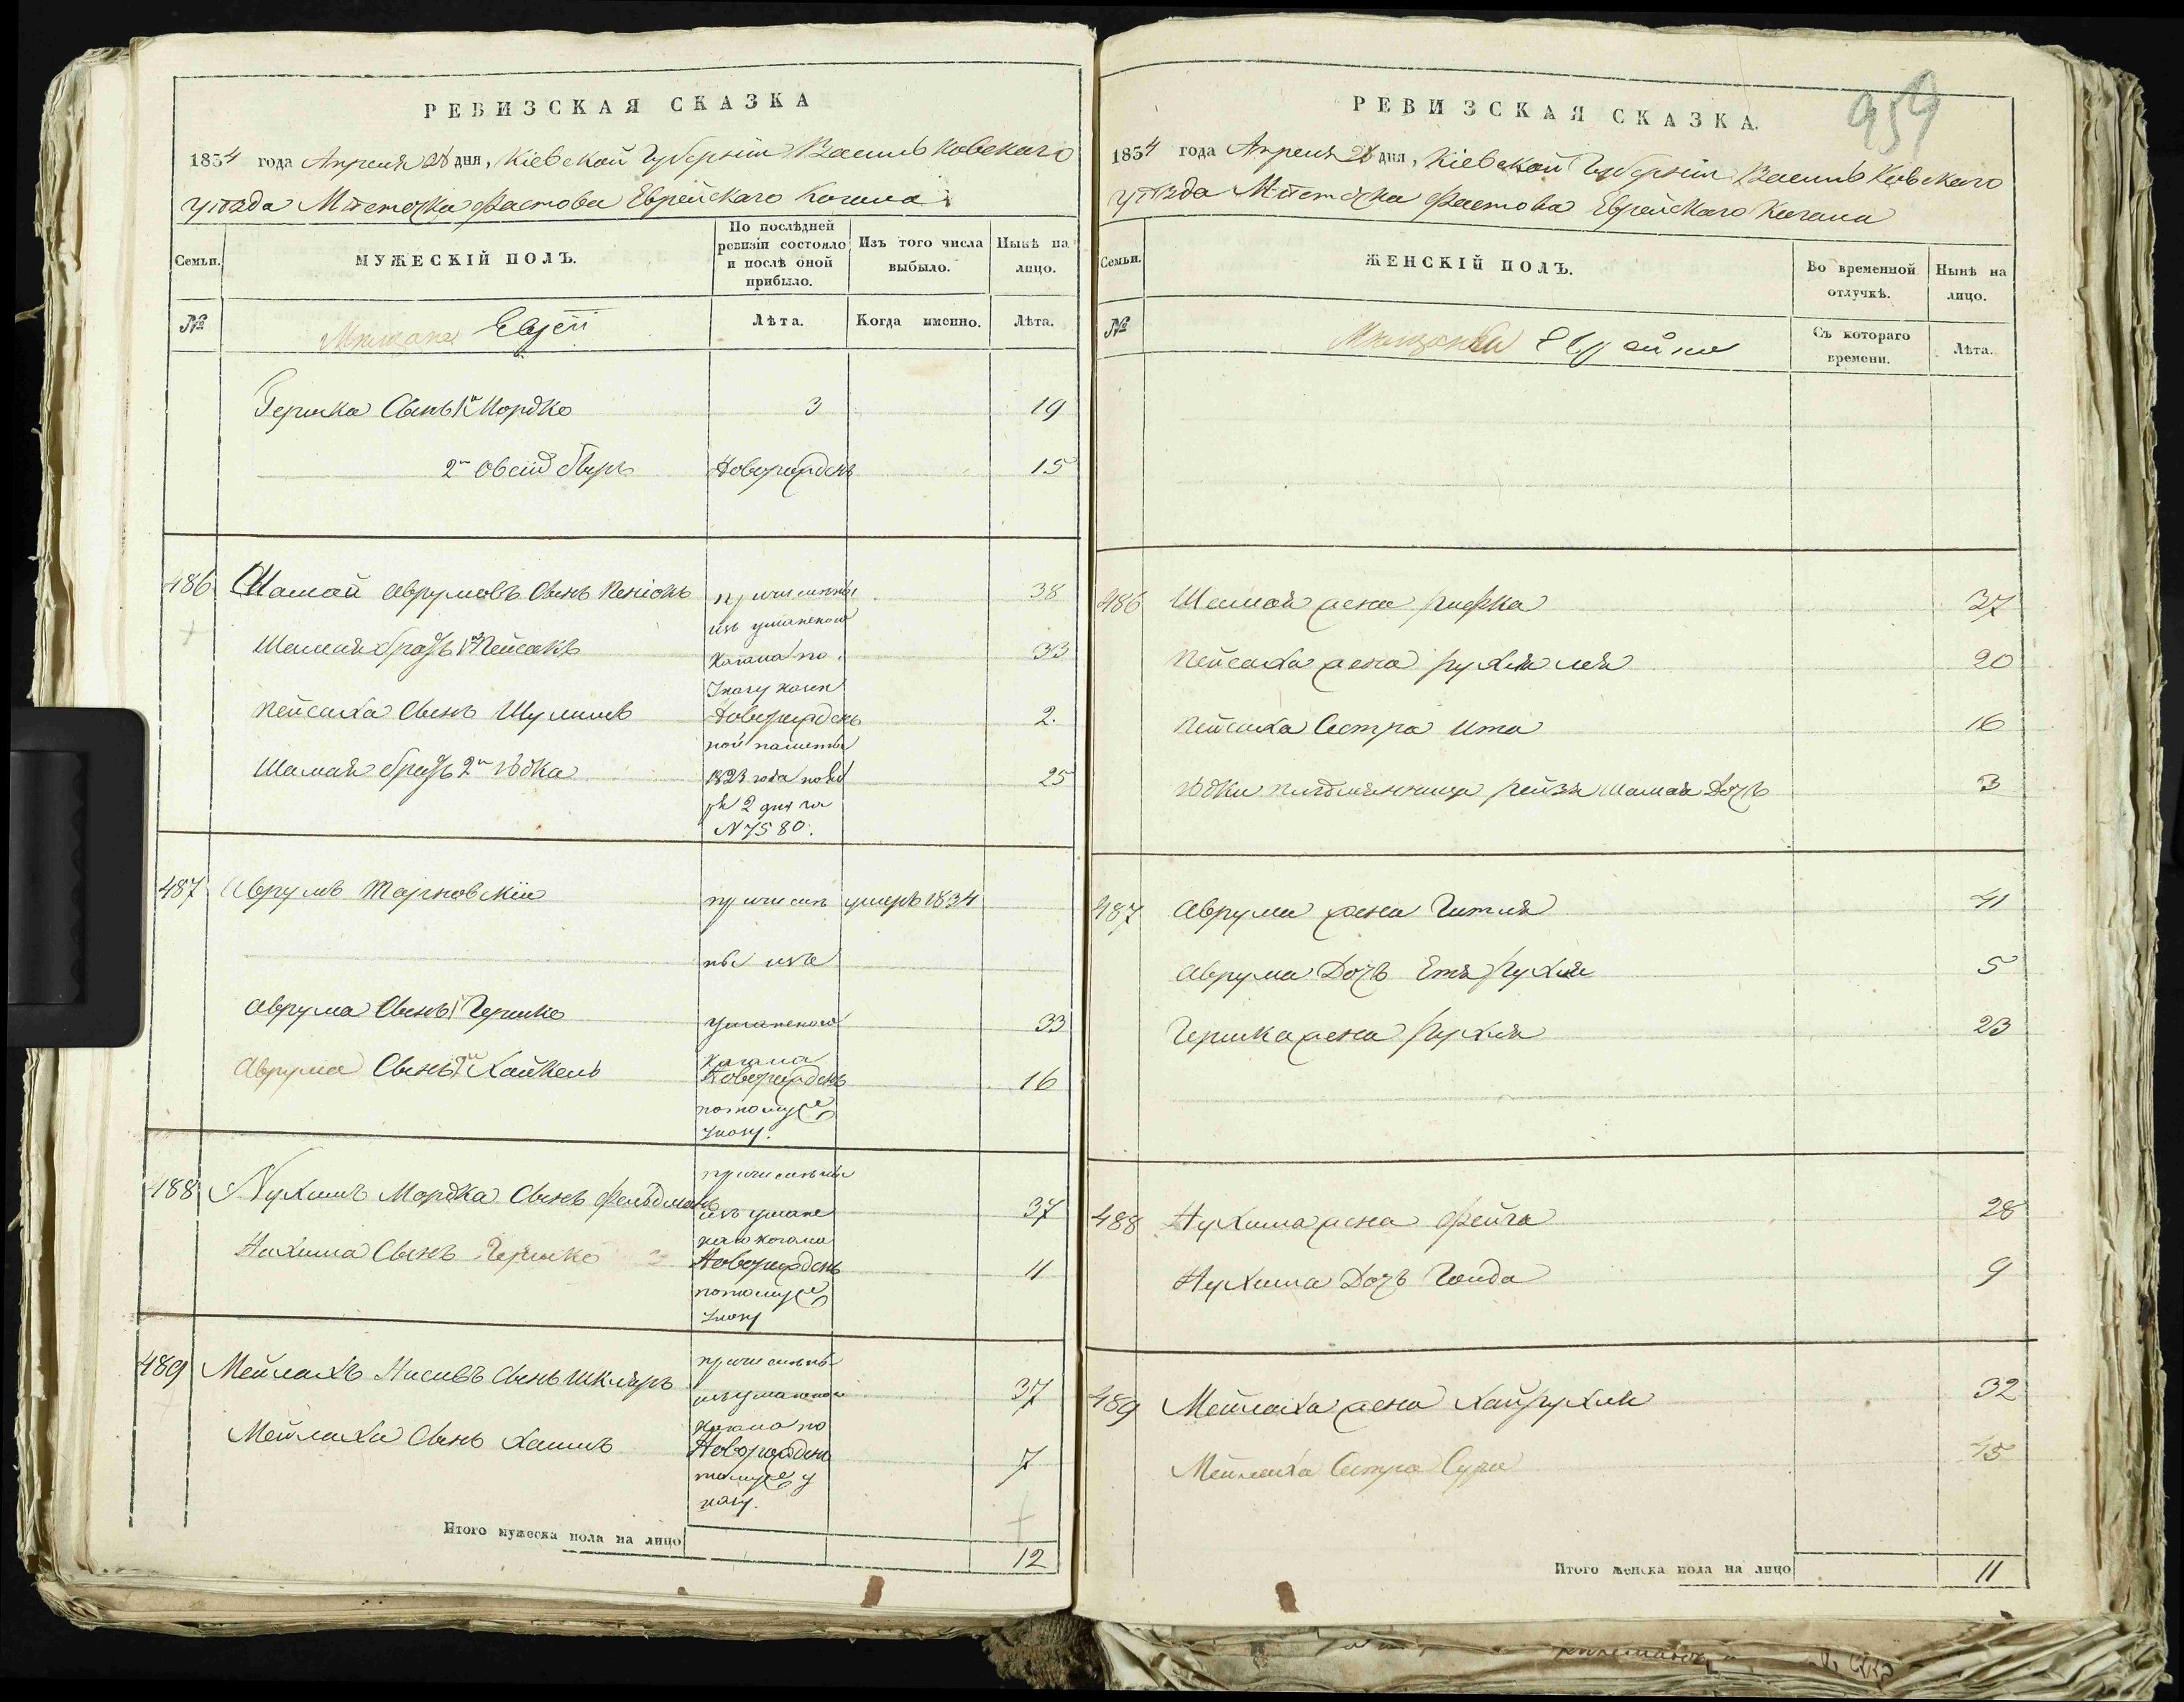 РЕВИЗСКАЯ СКАЗКА
1834 года Апреля 28 дня, Кіевской Губерніи Васильковскаго
уѣзда Мѣстечка Фастова Еврейскаго Кагала
Семьи.
МУЖЕСКІЙ ПОЛЪ.
По послѣдней
ревизіи состояло
и послѣ оной
прибыло.
Изъ того числа
выбыло.
Нынѣ на
лицо.
№
Мѣщане Евреи
Лѣта.
Когда именно.
Лѣта.
Гершка Сынъ 1й Мордко 3 19
2й Овсій Беръ Новорожденъ 15
486 Шамай Аврумовъ Сынъ 38
причислены
изъ уманскаго
Шамая братъ 1й Пейсахъ 33
Кагала по
Указу казен
Пейсаха Сынъ Шулимъ Новорожденъ 2.
ной палаты
Шамая братъ 2й Юдка 25
1828 года нояб
ря 2 дня за
N 7580.
487 Аврумъ Тарновскій причислен умеръ 1834
ны изъ
Аврума Сынъ 1й Гершко уманскаго 33
Кагала
Аврума Сынъ 2й Хайкель Новорожденъ 16
потомуже
Указу.
488 Нухимъ Мордка Сынъ Фельдманъ 37
причислены
изъ уман
скаго кагала
Нухима Сынъ Гершко Новорожденъ 11
потомуже
Указу
489 Мейлахъ Сынъ Шкляръ 37
причислены
изъ уманскаго
Кагала по
Мейлаха Сынъ Хаимъ Новорожденъ 7
томуже у
казу.
Итого мужеска пола на лицо 12
959
РЕВИЗСКАЯ СКАЗКА.
1834 года Апреля 28 дня, Кіевской Губерніи Васильковскаго
уѣзда Мѣстечка Фастова Еврейскаго Кагала
Семьи.
ЖЕНСКІЙ ПОЛЪ.
Во временной
отлучкѣ.
Нынѣ на
лицо.
№
Мѣщанки Еврейки
Съ котораго
времени.
Лѣта.
486 Шамая жена Рифка 37
Пейсаха жена Рухля Лея 20
Пейсаха Сестра Ита 16
Юдки племянница Рейзя Шамая Дочь 3
487 Аврума жена Гитля 41
Аврума Дочь Етя Рухля 5
Гершка жена Рухля 23
488 Нухима жена Фейга 28
Нухима Дочь Голда 9
489 Мейлаха жена Хая Рухля 32
Мейлаха Сестра Сура 15
Итого женска пола на лицо 11